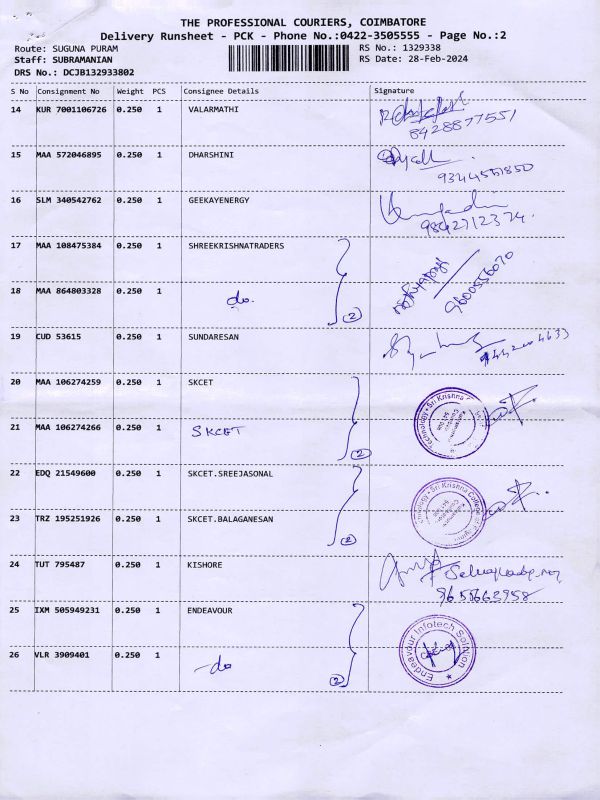 THE PROFESSIONAL COURIERS, COIMBATORE
Delivery Runsheet - PCK - Phone No.:0422-3505555 - Page No.:2
Route: SUGUNA PURAM RS No.: 1329338
Staff: SUBRAMANIAN RS Date: 28-Feb-2024
DRS No.: DCJB132933802
S No Consignment No Weight PCS Consignee Details Signature
14 KUR 7001106726 0.250 1 VALARMATHI
8428877551
15 MAA 572046895 0.250 1 DHARSHINI
16 SLM 340542762 0.250 1 GEEKAYENERGY
9842712374.
17 MAA 108475384 0.250 1 SHREEKRISHNATRADERS
9600556070
18 MAA 864803328 0.250 1 do. (2)
19 CUD 53615 0.250 1 SUNDARESAN
20 MAA 106274259 0.250 1 SKCET
Sri Krishna
21 MAA 106274266 0.250 1 SKCET (2)
22 EDQ 21549600 0.250 1 SKCET.SREEJASONAL
Sri Krishna College
23 TRZ 195251926 0.250 1 SKCET.BALAGANESAN (2)
24 TUT 795487 0.250 1 KISHORE
9655663958
25 IXM 505949231 0.250 1 ENDEAVOUR
Endeavour Infotech Solution
26 VLR 3909401 0.250 1 -do (2)